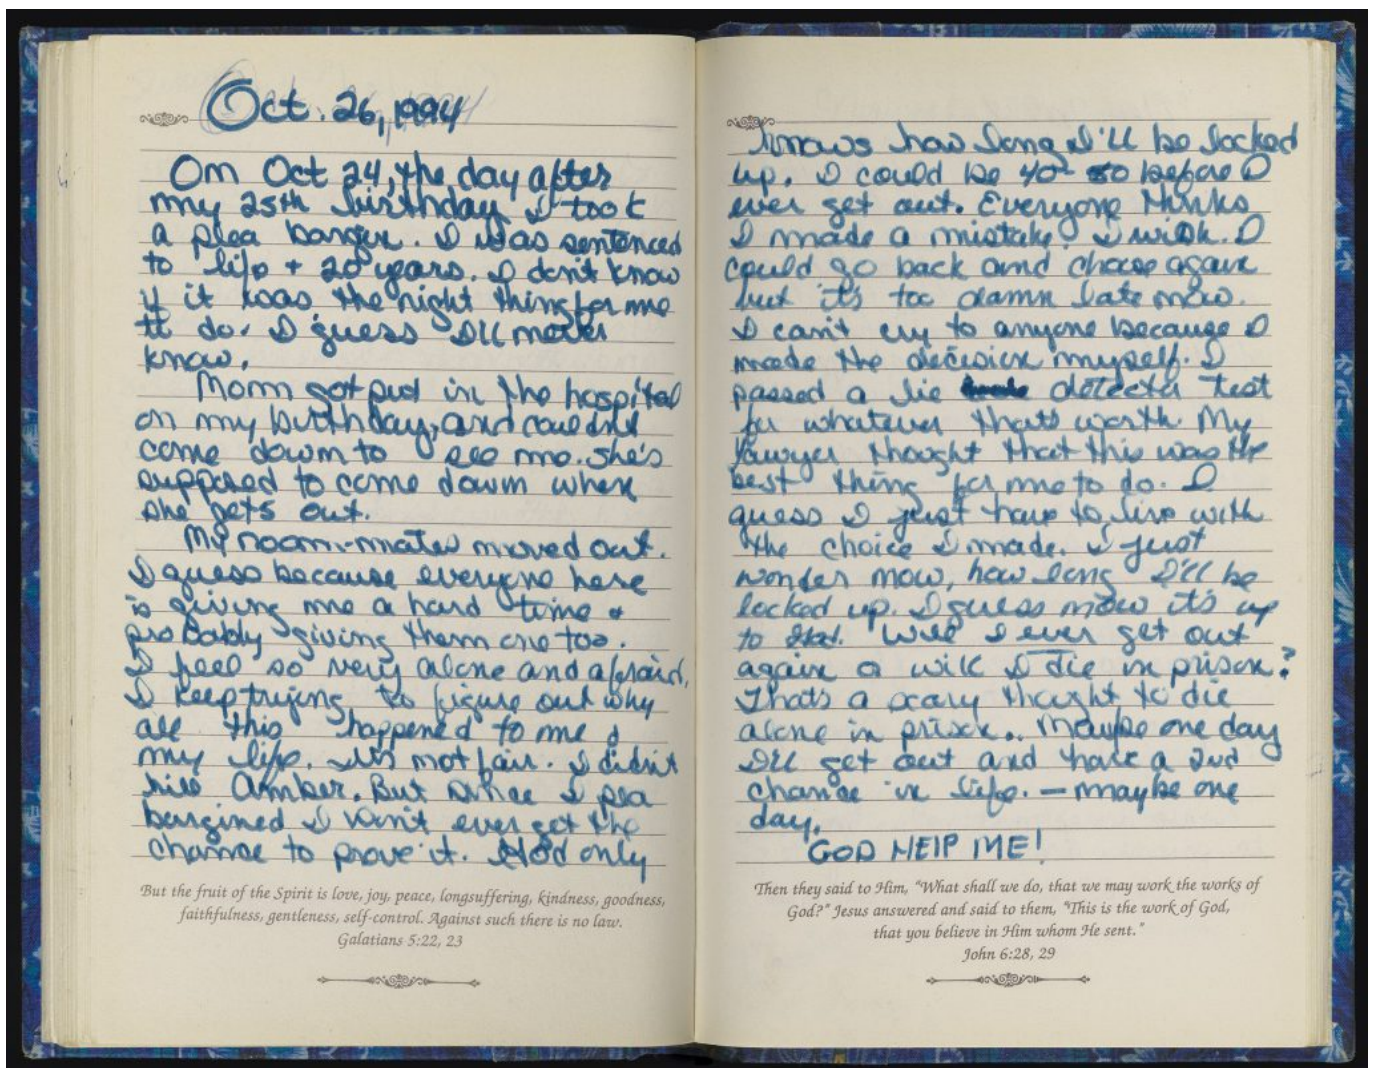 Oct. 26, 1994
On Oct 24, the day after
my 25th birthday I took
a plea bargin. I was sentenced
to life + 20 years. I don't know
if it was the right thing for me
to do. I guess I'll never
know.
Mom got put in the hospital
on my birthday, and couldn't
come down to see me. She's
supposed to come down when
she gets out.
My room-mates moved out.
I guess because everyone here
is giving me a hard time &
probably giving them one too.
I feel so very alone and afraid.
I keep trying to figure out why
all this happened to me &
my life. It's not fair. I didn't
kill Amber. But since I plea
bargined I won't ever get the
chance to prove it. God only
But the fruit of the Spirit is love, joy, peace, longsuffering, kindness, goodness,
faithfulness, gentleness, self-control. Against such there is no law.
Galatians 5:22, 23
knows how long I'll be locked
up. I could be 40-50 before I
ever get out. Everyone thinks
I made a mistake. I wish I
could go back and chose again
but it's too damn late now.
I can't cry to anyone because I
made the decision myself. I
passed a lie detector test
for whatever thats worth. My
lawyer thought that this was the
best thing for me to do. I
guess I just have to live with
the choice I made. I just
wonder now, how long I'll be
locked up. I guess now it's up
to God. Will I ever get out
again or will I die in prison?
Thats a scary thought to die
alone in prison.. Maybe one day
I'll get out and have a 2nd
chance in life. — maybe one
day.
GOD HElP ME!
Then they said to Him, "What shall we do, that we may work the works of
God?" Jesus answered and said to them, "This is the work of God,
that you believe in Him whom He sent."
John 6:28, 29